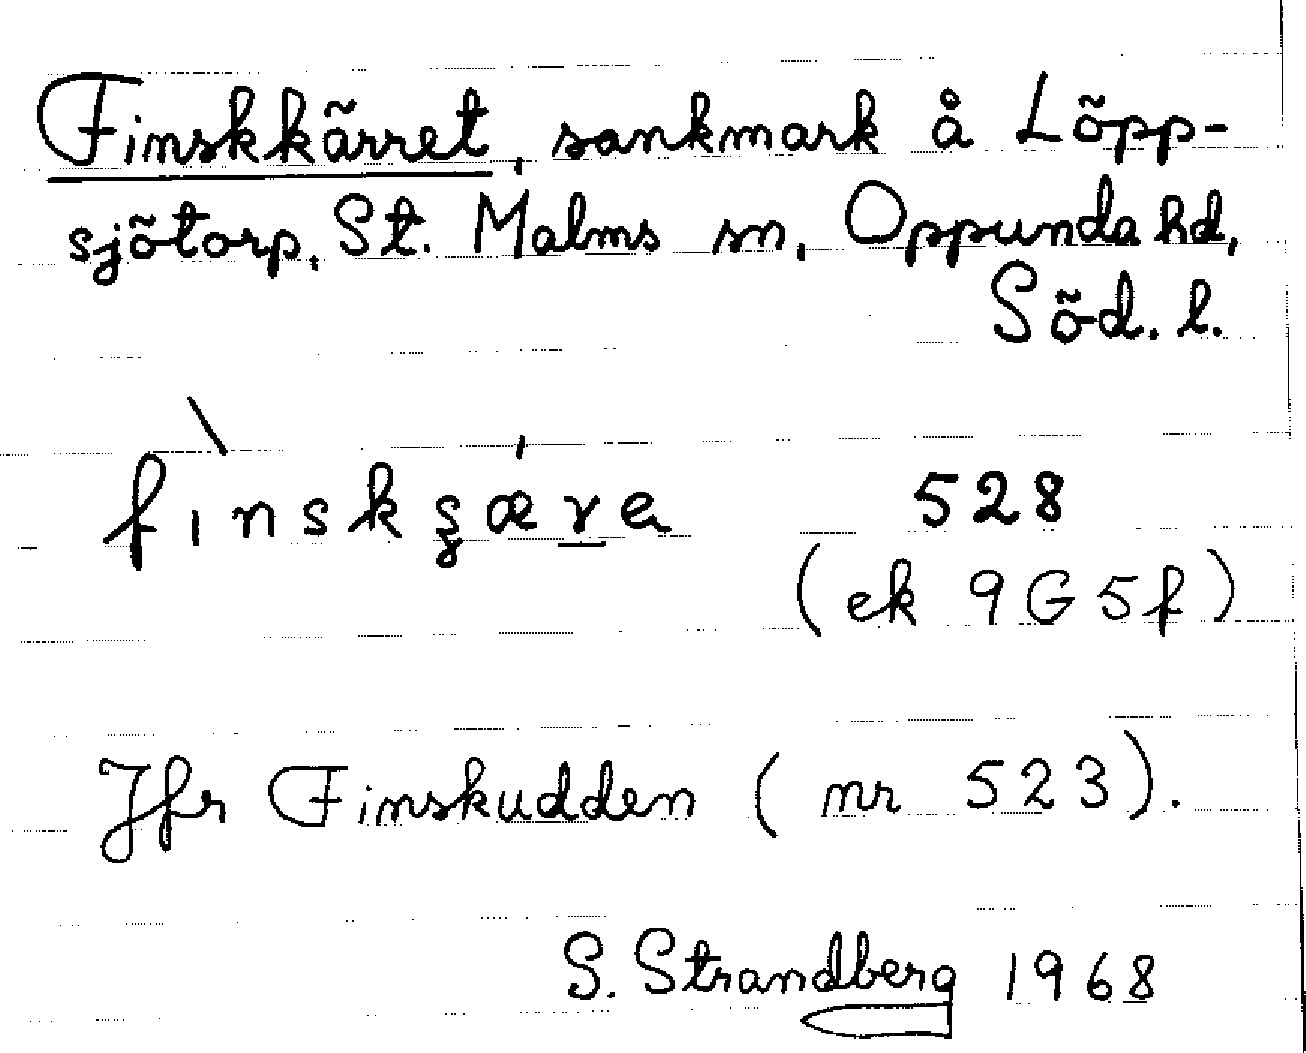 Finskkärret, sankmark å Löpp-
sjötorp, St. Malms sn, Oppunda hd,
Söd. l.
fınskʂærɐ 528
(ek 9G5f)
Jfr Finskudden (nr 523).
S. Strandberg 1968